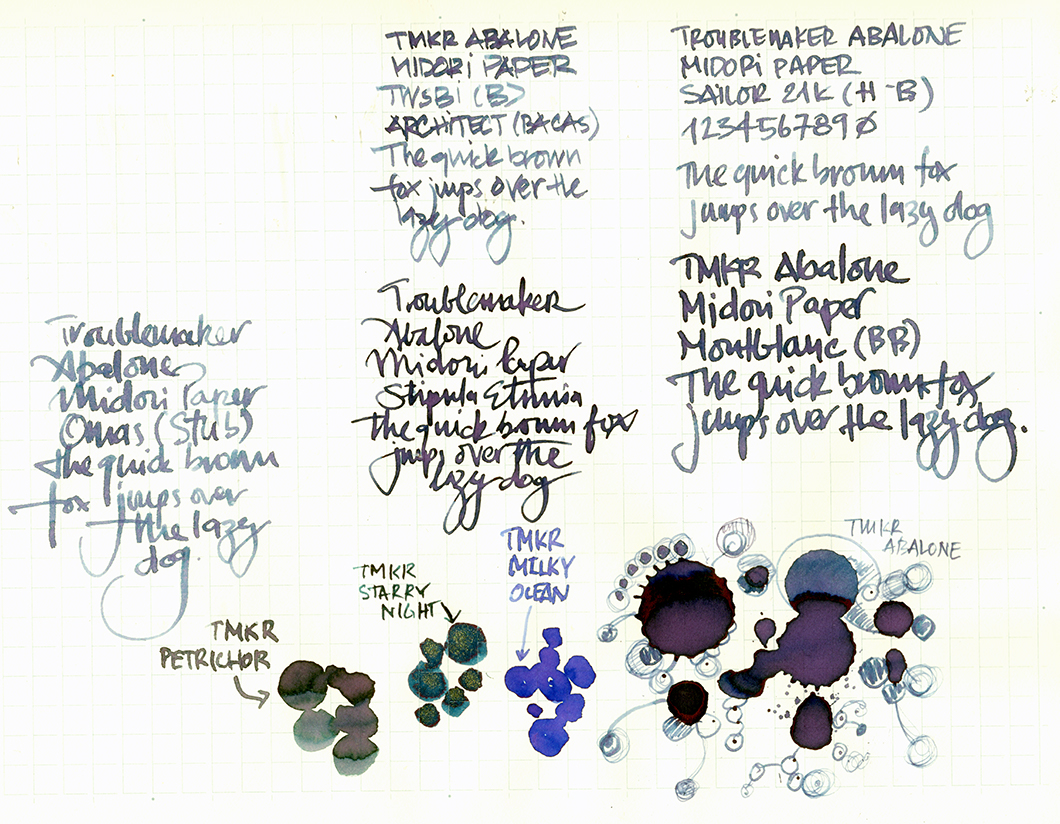 TMKR ABALONE
MIDORI PAPER
TWSBI (B)
ARCHITECT (BACAS)
The quick brown
fox jumps over the
lazy dog.
TROUBLEMAKER ABALONE
MIDORI PAPER
SAILOR 21K (H-B)
1234567890
The quick brown fox
jumps over the lazy dog
Troublemaker
Abalone
Midori Paper
Omas (Stub)
the quick brown
fox jumps over
the lazy
dog.
Troublemaker
Abalone
Midori Paper
Stipula Etruria
the quick brown fox
jumps over the
lazy dog
TMKR Abalone
Midori Paper
Montblanc (BB)
The quick brown fox
jumps over the lazy dog.
TMKR
PETRICHOR
TMKR
STARRY
NIGHT
TMKR
MILKY
OCEAN
TMKR
ABALONE